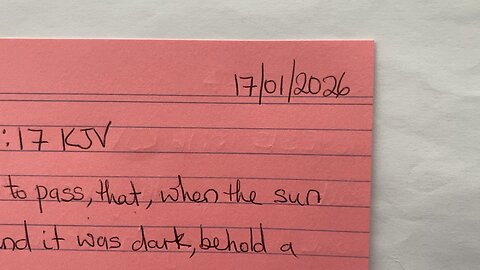 17/01/2026
:17 KJV
to pass, that, when the sun
it was dark, behold a